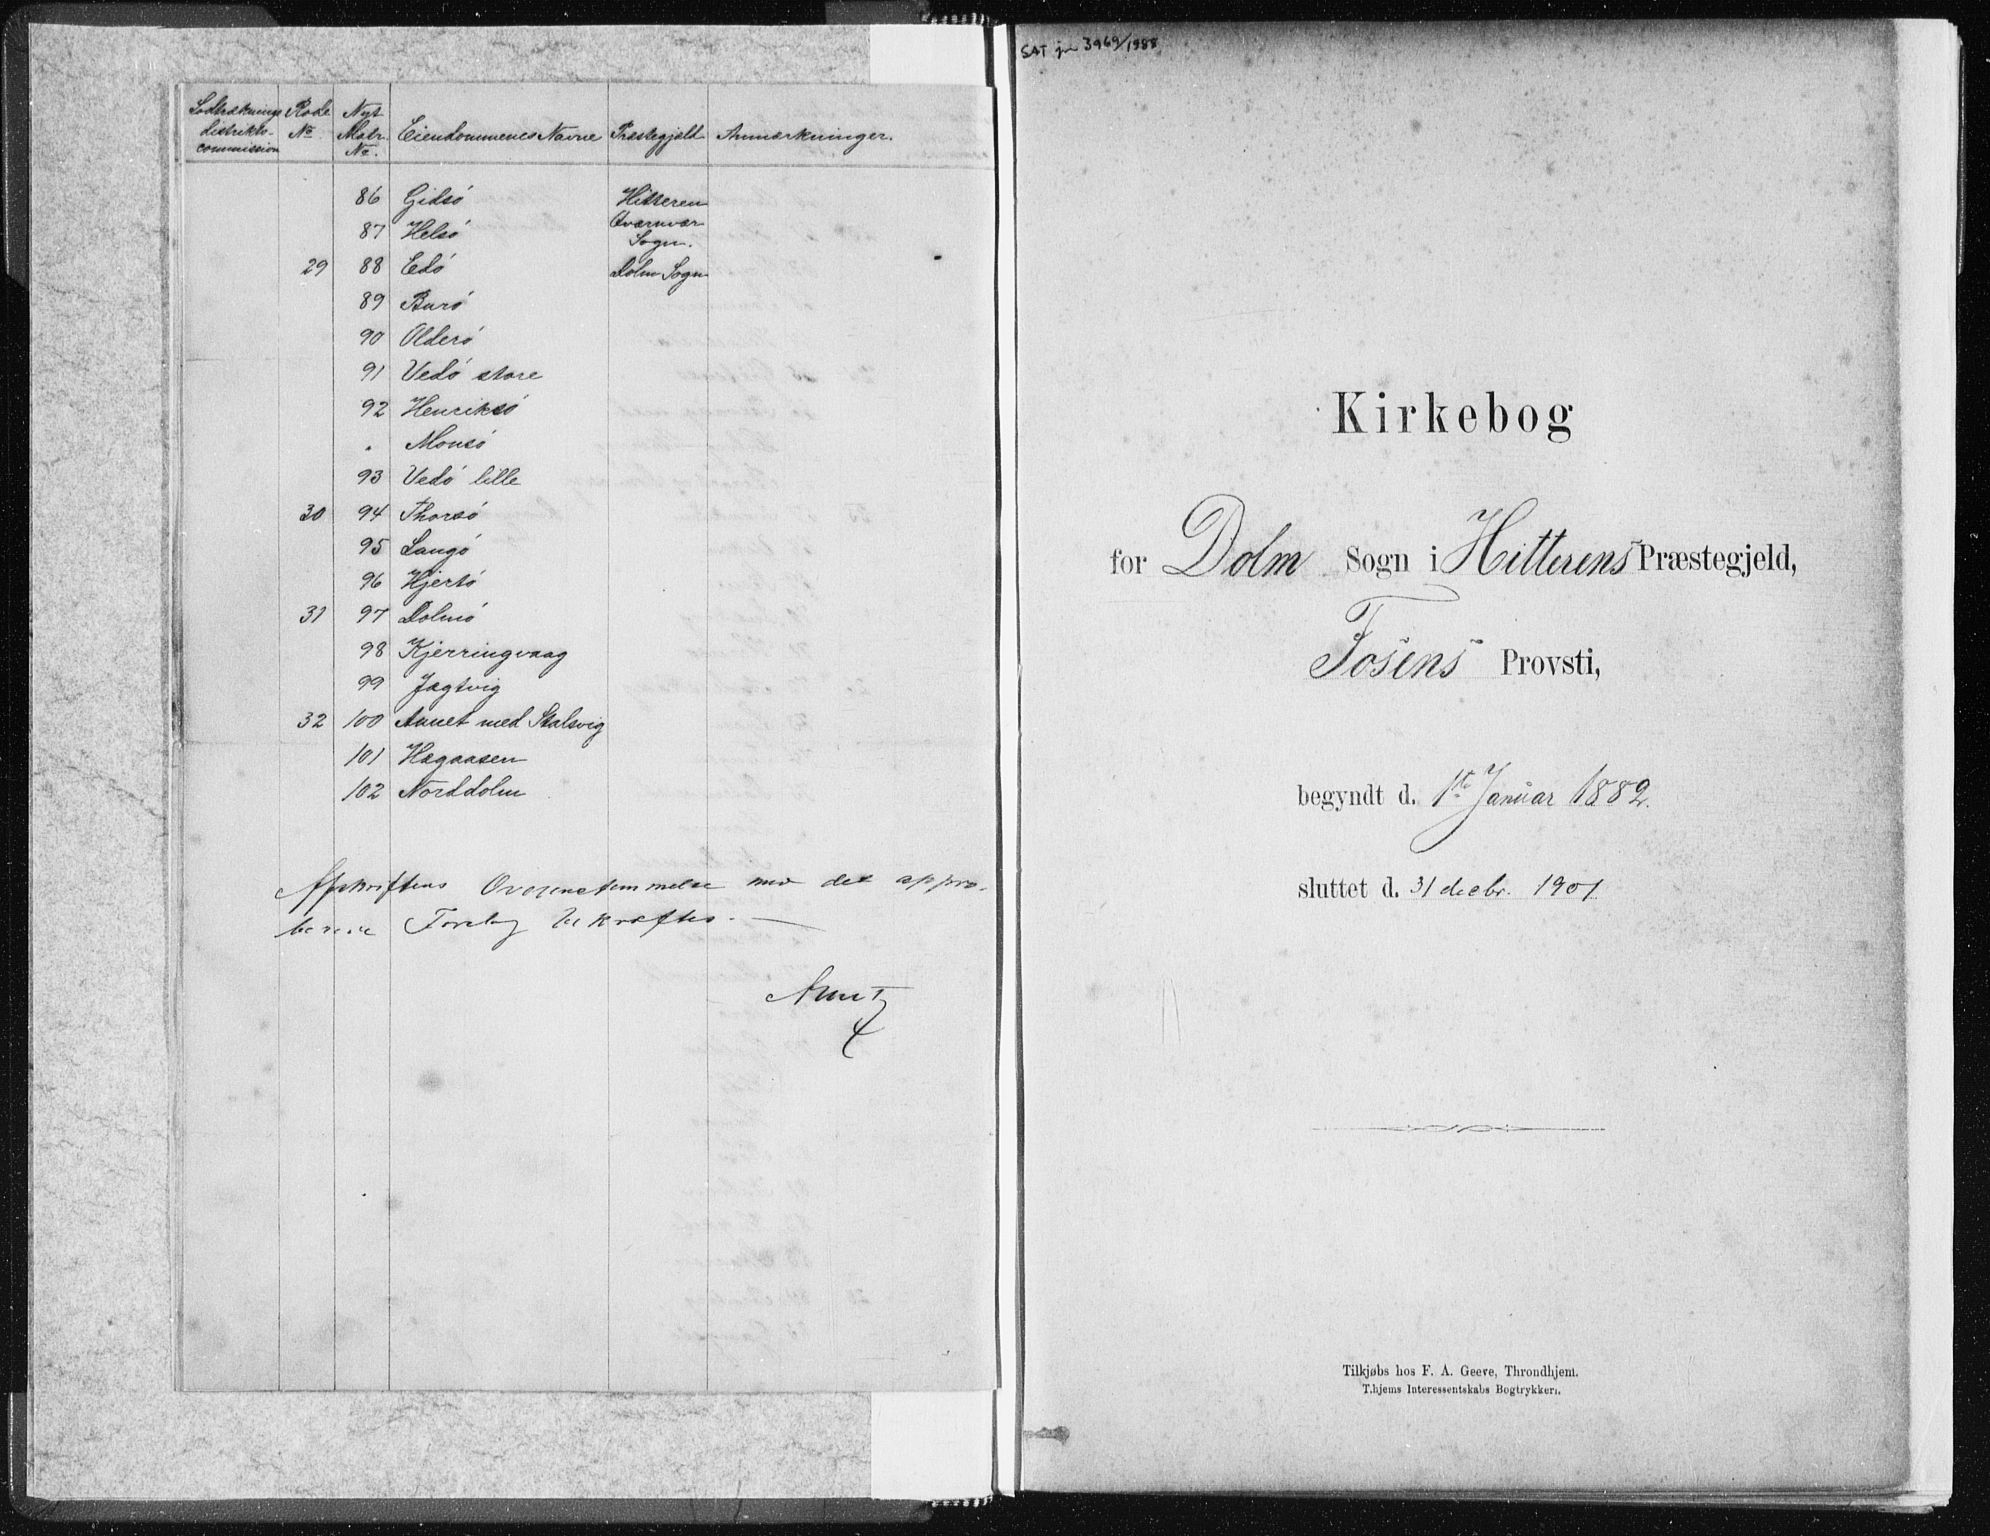 Lodtræknings Rode Nyt
distrikts- No Matr. Eiendommenes Navne Præstegjeld Anmærkninger.
commission No.
86 Gidsö Hitteren
87 Helsö Qværnvær
Sogn.
29 88 Edö Dolm Sogn
89 Burö
90 Olderö
91 Vedö store
92 Henriksö
" Monsö
93 Vedö lille
30 94 Thorsö
95 Langö
96 Hjertö
31 97 Dolmö
98 Kjerringvaag
99 Jagtvig
32 100 Aunet med Stalsvig
101 Hagaasen
102 Norddolm
Afskriftens Overensstemmelse med det appro-
berede Forslag bekræftes.
Arntz
SAT jnr 3969/1988
Kirkebog
for Dolm Sogn i Hitterens Præstegjeld,
Fosens Provsti,
begyndt d. 1ste Januar 1882.
sluttet d. 31 decbr. 1901
Tilkjøbs hos F. A. Geeve, Throndhjem.
T.hjems Interessentskabs Bogtrykkeri.